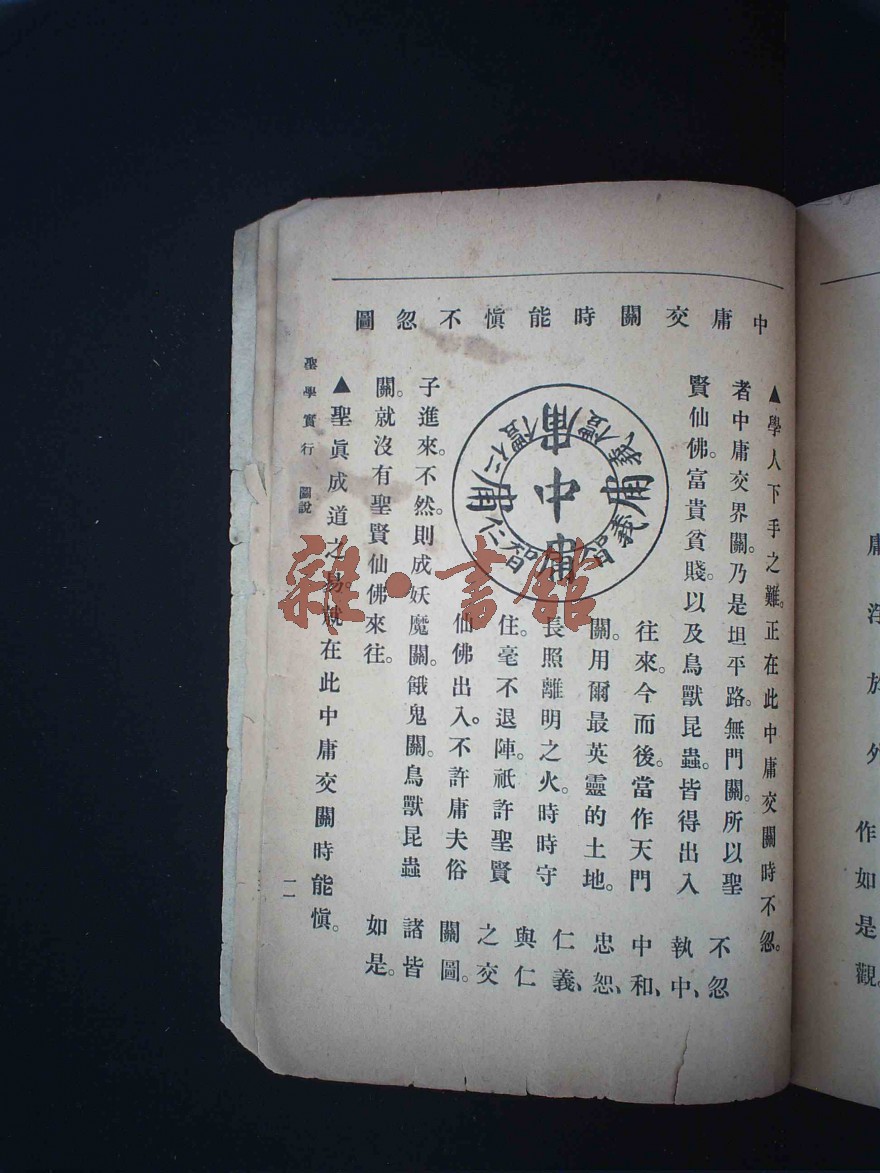 中庸交關時能慎不忽圖
▲學人下手之難。正在此中庸交關時不忽。
者中庸交界關。乃是坦平路。無門關。所以聖
賢仙佛。富貴貧賤。以及鳥獸昆蟲。皆得出入
往來。今而後。當作天門
關。用爾最英靈的土地。
長照離明之火。時時守
住。毫不退陣。祇許聖賢
仙佛出入。不許庸夫俗
子進來。不然。則成妖魔關。餓鬼關。鳥獸昆蟲
關。就沒有聖賢仙佛來往。
▲聖眞成道之易。就在此中庸交關時能慎。
不忽
執中、
中和、
忠恕、
仁義、
與仁
之交
關圖。
諸皆
如是。
中
庸
庸
庸
庸
仁
義
禮
智
仁
義
禮
智
聖學實行 圖說
一一
雜·書館
庸
浮
於
外
作如是觀。